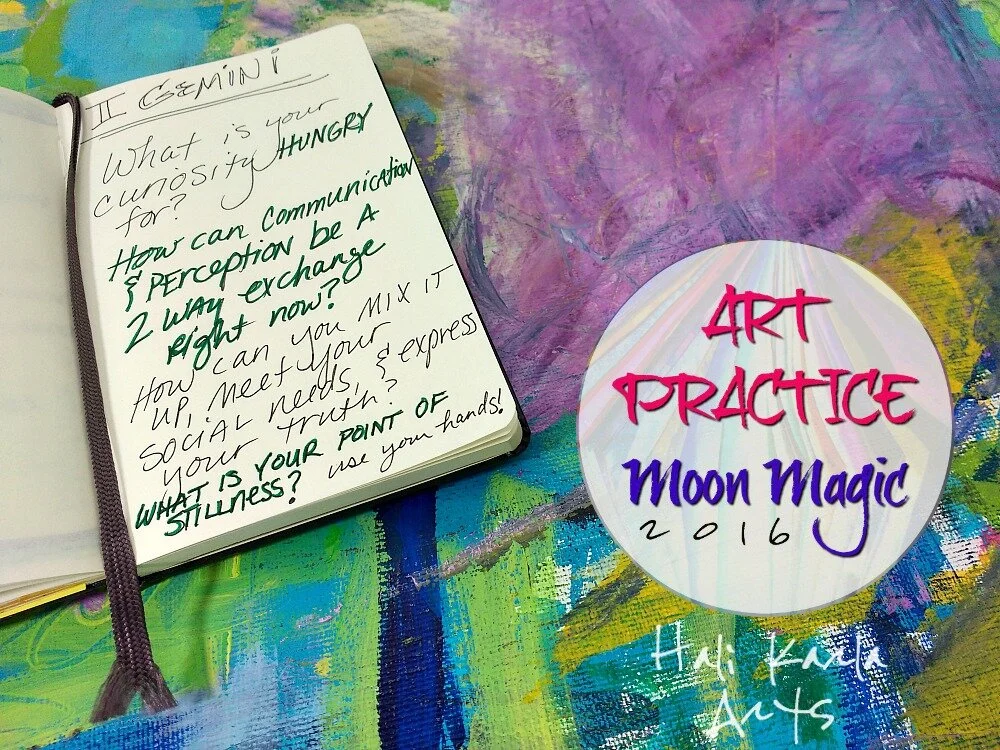 II GEMINI
What is your
curiosity HUNGRY
for?
How can Communication
& PERCEPTION be A
2 WAY exchange
right now?
How can you MIX IT
UP, Meet your
SOCIAL needs, & express
your truth?
WHAT IS YOUR POINT OF
STILLNESS? use your hands!
ART
PRACTICE
Moon Magic
2016
Hali Karla
Arts